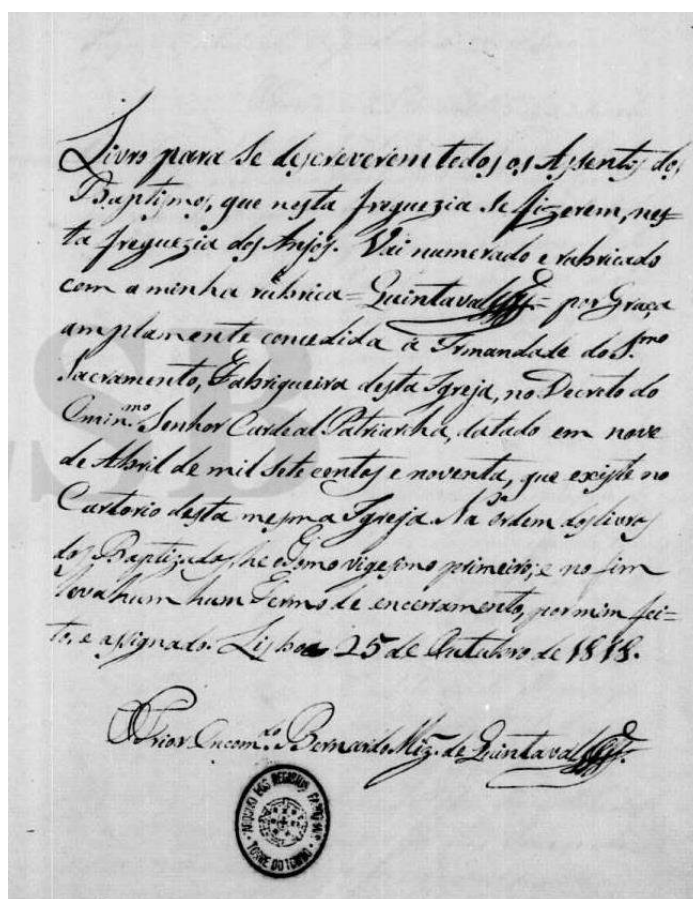 Livro para se descreverem todos os Assentos dos
Baptismos, que nesta freguezia se fizerem, nes-
ta freguezia dos Anjos. Vai numerado e rubricado
com a minha rubrica = Quintaval = por Graça
amplamente concedida á Irmandade do S.mo
Sacramento, Fabriqueira desta Igreja, no Decreto do
Emin.mo Senhor Cardeal Patriarcha, datado em nove
de Abril de mil sete centos e noventa, que existe no
Cartorio desta mesma Igreja. Na ordem dos livros
dos Baptizados, he o Tomo vigesimo primeiro; e no fim
leva hum hum Termo de encerramento, por mim fei=
to, e assignado. Lisboa 25 de Outubro de 1818.
O Prior Encom.do Bernardo Miz. de Quintaval
ARQUIVO DOS REGISTOS PAROQUIAIS
TORRE DO TOMBO
SB